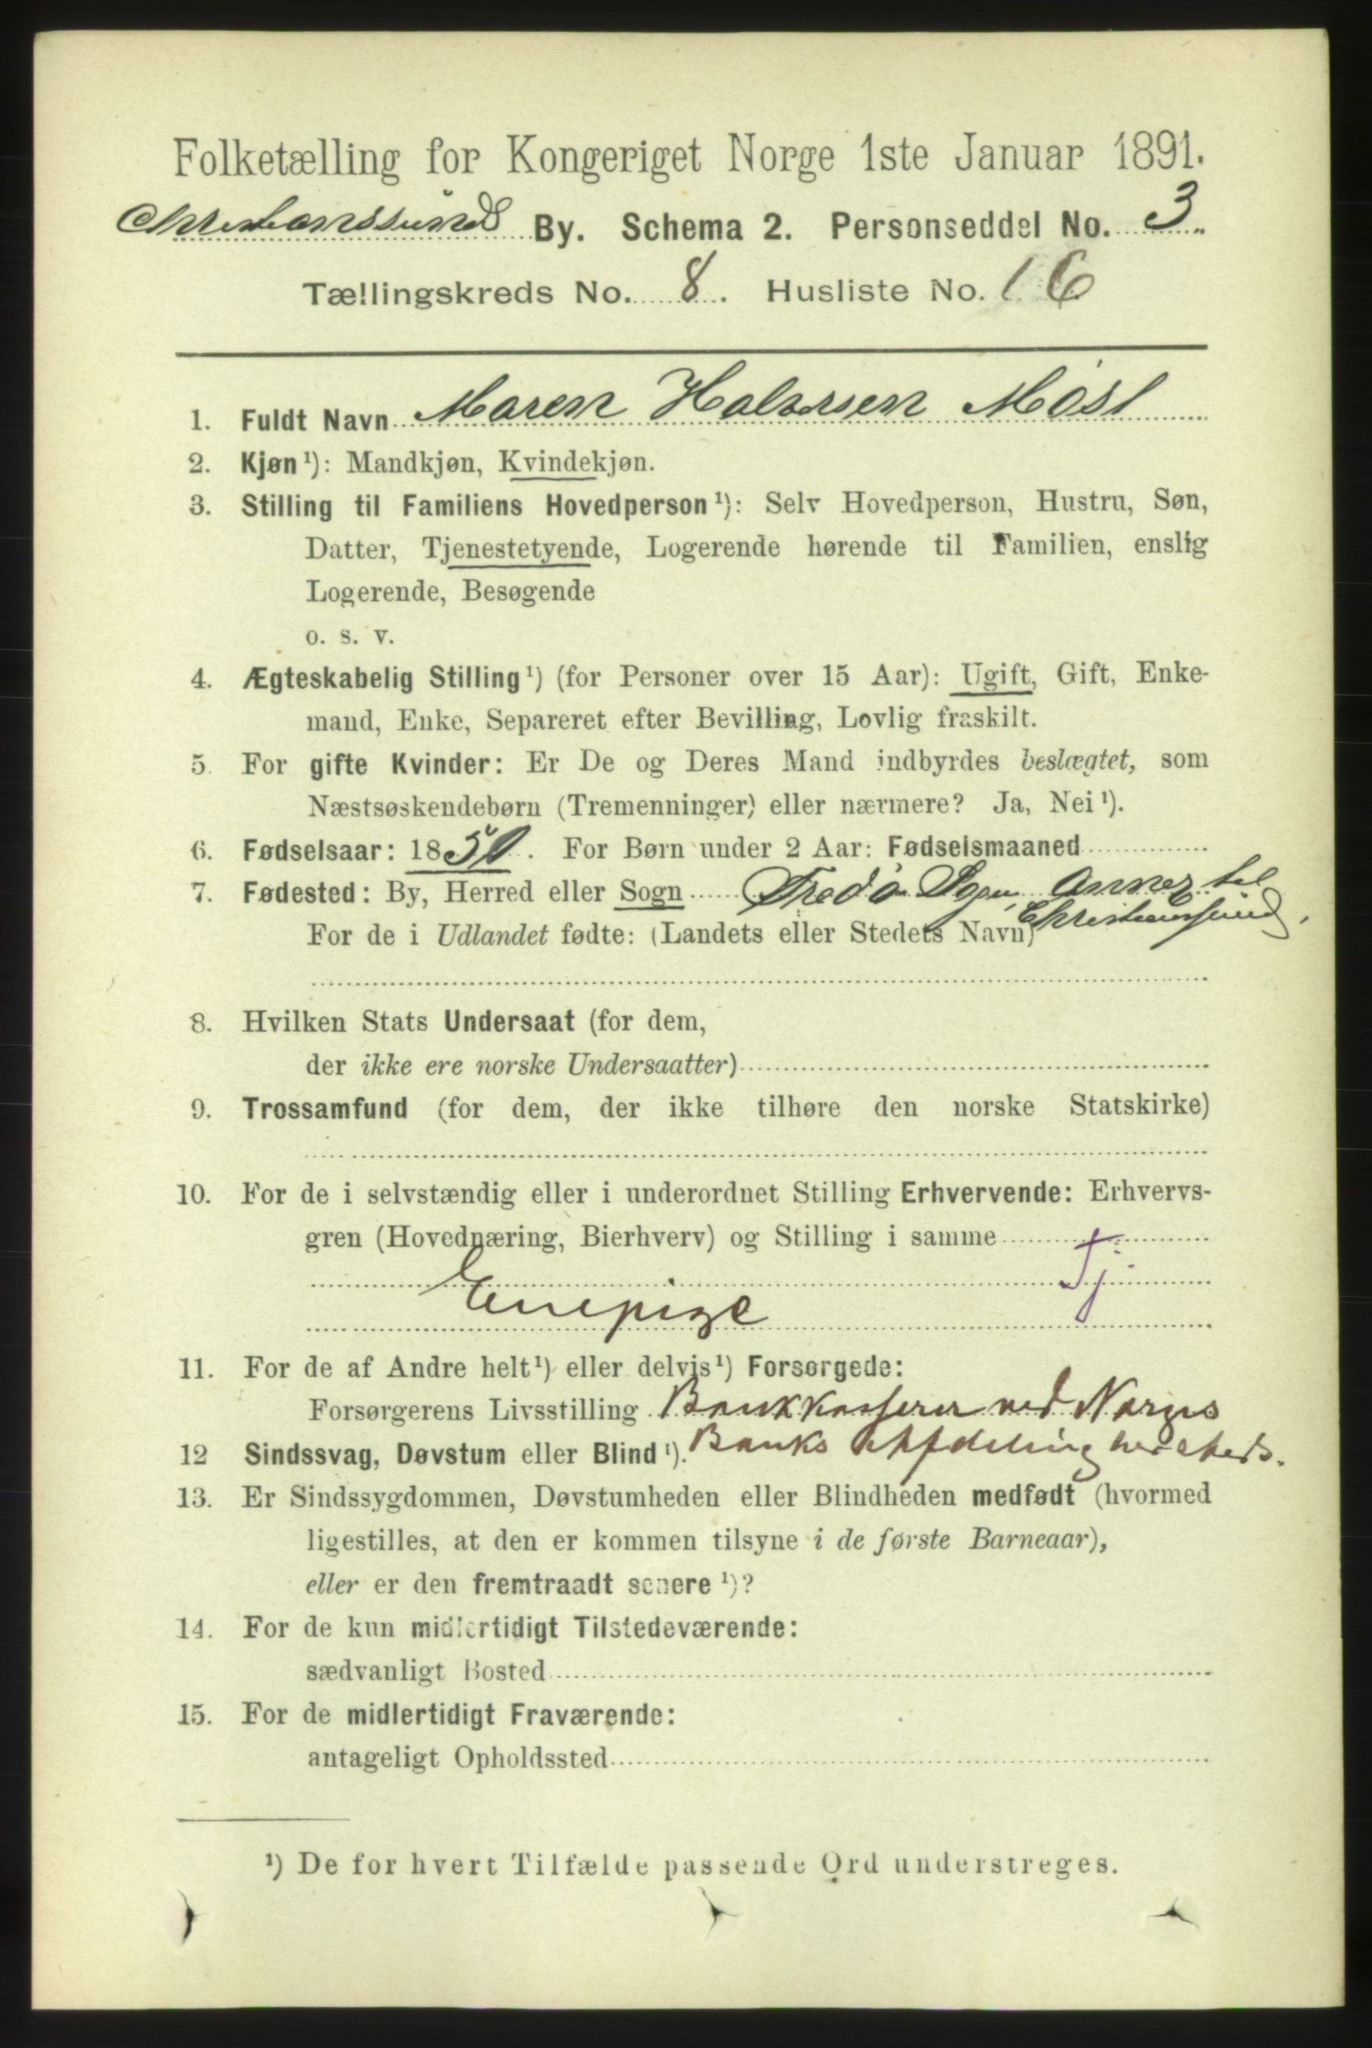 Folketælling for Kongeriget Norge 1ste Januar 1891.
Christianssund By. Schema 2. Personseddel No. 3.
Tællingskreds No. 8. Husliste No. 16
1. Fuldt Navn Maren Halvorsen Møst
2. Kjøn ¹): Mandkjøn, Kvindekjøn.
3. Stilling til Familiens Hovedperson ¹): Selv Hovedperson, Hustru, Søn,
Datter, Tjenestetyende, Logerende hørende til Familien, enslig
Logerende, Besøgende
o. s. v.
4. Ægteskabelig Stilling ¹) (for Personer over 15 Aar): Ugift, Gift, Enke-
mand, Enke, Separeret efter Bevilling, Lovlig fraskilt.
5. For gifte Kvinder: Er De og Deres Mand indbyrdes beslægtet, som
Næstsøskendebørn (Tremenninger) eller nærmere? Ja, Nei ¹).
6. Fødselsaar: 1850. For Børn under 2 Aar: Fødselsmaaned
7. Fødested: By, Herred eller Sogn Fredø Sogn, Annex til
Christianssund.
For de i Udlandet fødte: (Landets eller Stedets Navn)
8. Hvilken Stats Undersaat (for dem,
der ikke ere norske Undersaatter)
9. Trossamfund (for dem, der ikke tilhøre den norske Statskirke)
10. For de i selvstændig eller i underordnet Stilling Erhvervende: Erhvervs-
gren (Hovednæring, Bierhverv) og Stilling i samme
Tj.
Enepige
11. For de af Andre helt ¹) eller delvis ¹) Forsørgede:
Forsørgerens Livsstilling Bankkasserer ved Norges
Banks Afdeling hersteds.
12 Sindssvag, Døvstum eller Blind ¹).
13. Er Sindssygdommen, Døvstumheden eller Blindheden medfødt (hvormed
ligestilles, at den er kommen tilsyne i de første Barneaar),
eller er den fremtraadt senere ¹)?
14. For de kun midlertidigt Tilstedeværende:
sædvanligt Bosted
15. For de midlertidigt Fraværende:
antageligt Opholdssted
¹) De for hvert Tilfælde passende Ord understreges.